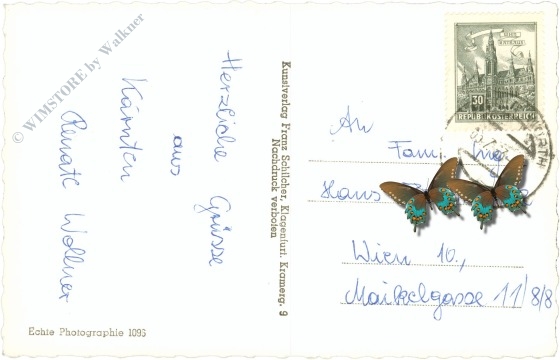 © WIMSTORE by Walkner
Herzliche Grüsse
aus
Kärnten
Renate Wollner
Echte Photographie 109S
Kunstverlag Franz Schilcher, Klagenfurt, Kramerg. 9
Nachdruck verboten
WIEN
RATHAUS
30
REPUBLIK ÖSTERREICH
An
Fam. Ing.
Hans
Wien 10.,
11/8/8